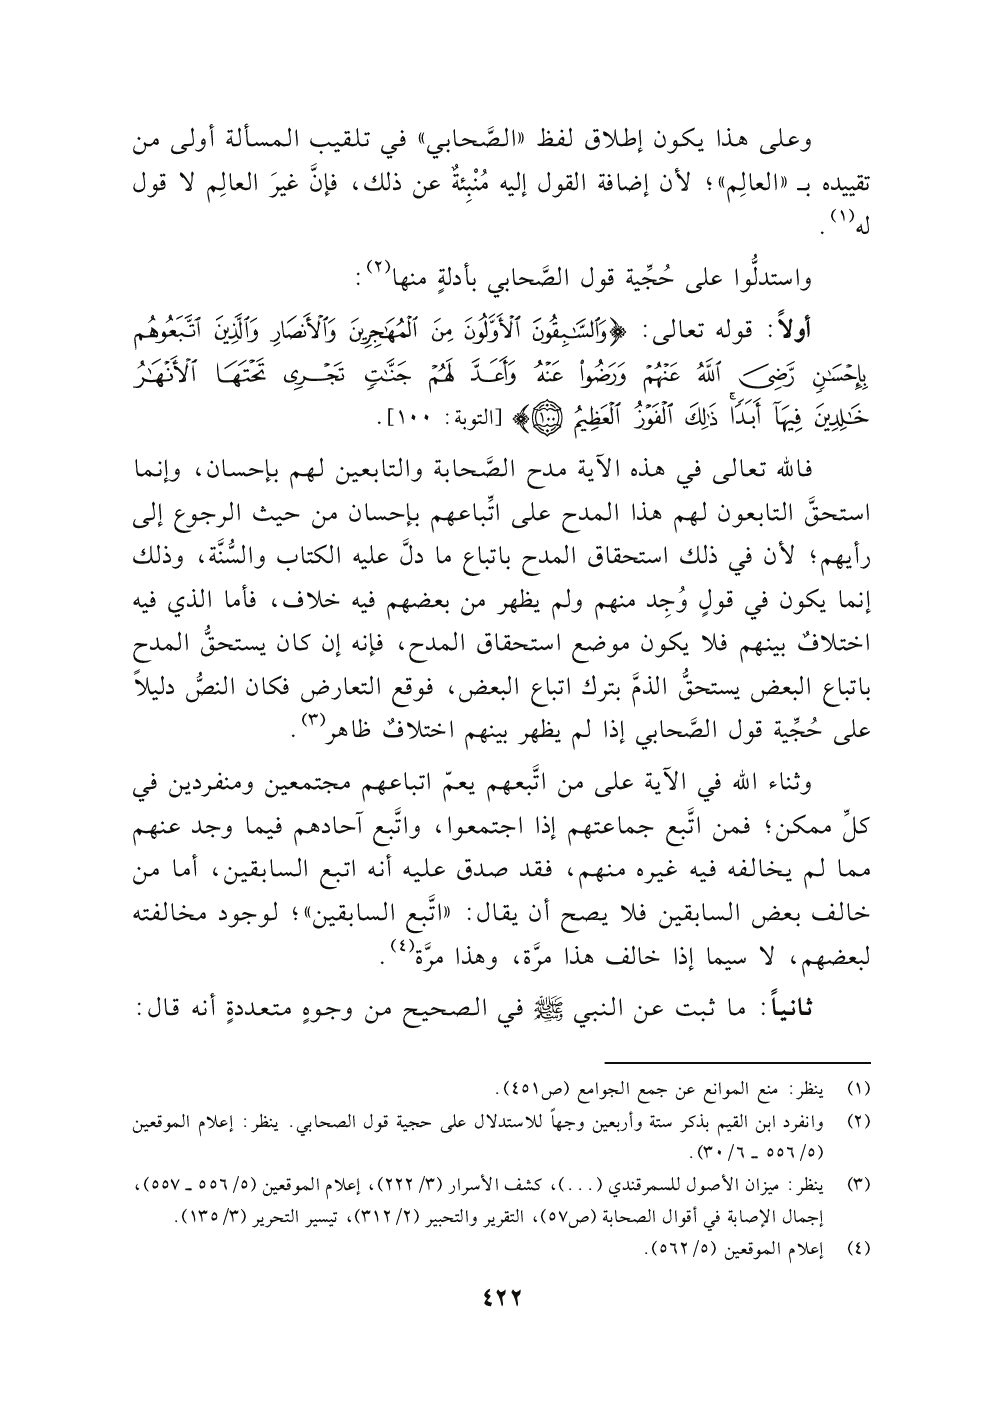 وعلى هذا يكون إطلاق لفظ «الصَّحابي» في تلقيب المسألة أولى من
تقييده بـ «العالِم»؛ لأن إضافة القول إليه مُنْبِئةٌ عن ذلك، فإنَّ غيرَ العالِم لا قول
له(١).
واستدلُّوا على حُجِّية قول الصَّحابي بأدلةٍ منها(٢):
أولاً: قوله تعالى: ﴿وَٱلسَّـٰبِقُونَ ٱلْأَوَّلُونَ مِنَ ٱلْمُهَـٰجِرِينَ وَٱلْأَنصَارِ وَٱلَّذِينَ ٱتَّبَعُوهُم
بِإِحْسَـٰنٍ رَّضِىَ ٱللَّهُ عَنْهُمْ وَرَضُوا۟ عَنْهُ وَأَعَدَّ لَهُمْ جَنَّـٰتٍ تَجْرِى تَحْتَهَا ٱلْأَنْهَـٰرُ
خَـٰلِدِينَ فِيهَآ أَبَدًا ۚ ذَٰلِكَ ٱلْفَوْزُ ٱلْعَظِيمُ ١٠٠﴾ [التوبة: ١٠٠].
فالله تعالى في هذه الآية مدح الصَّحابة والتابعين لهم بإحسان، وإنما
استحقَّ التابعون لهم هذا المدح على اتِّباعهم بإحسان من حيث الرجوع إلى
رأيهم؛ لأن في ذلك استحقاق المدح باتباع ما دلَّ عليه الكتاب والسُّنَّة، وذلك
إنما يكون في قولٍ وُجِد منهم ولم يظهر من بعضهم فيه خلاف، فأما الذي فيه
اختلافٌ بينهم فلا يكون موضع استحقاق المدح، فإنه إن كان يستحقُّ المدح
باتباع البعض يستحقُّ الذمَّ بترك اتباع البعض، فوقع التعارض فكان النصُّ دليلاً
على حُجِّية قول الصَّحابي إذا لم يظهر بينهم اختلافٌ ظاهر(٣).
وثناء الله في الآية على من اتَّبعهم يعمّ اتباعهم مجتمعين ومنفردين في
كلِّ ممكن؛ فمن اتَّبع جماعتهم إذا اجتمعوا، واتَّبع آحادهم فيما وجد عنهم
مما لم يخالفه فيه غيره منهم، فقد صدق عليه أنه اتبع السابقين، أما من
خالف بعض السابقين فلا يصح أن يقال: «اتَّبع السابقين»؛ لوجود مخالفته
لبعضهم، لا سيما إذا خالف هذا مرَّة، وهذا مرَّة(٤).
ثانياً: ما ثبت عن النبي ﷺ في الصحيح من وجوهٍ متعددةٍ أنه قال:
(١) ينظر: منع الموانع عن جمع الجوامع (ص٤٥١).
(٢) وانفرد ابن القيم بذكر ستة وأربعين وجهاً للاستدلال على حجية قول الصحابي. ينظر: إعلام الموقعين
(٥/ ٥٥٦ ـ ٦/ ٣٠).
(٣) ينظر: ميزان الأصول للسمرقندي (...)، كشف الأسرار (٣/ ٢٢٢)، إعلام الموقعين (٥/ ٥٥٦ ـ ٥٥٧)،
إجمال الإصابة في أقوال الصحابة (ص٥٧)، التقرير والتحبير (٢/ ٣١٢)، تيسير التحرير (٣/ ١٣٥).
(٤) إعلام الموقعين (٥/ ٥٦٢).
٤٢٢